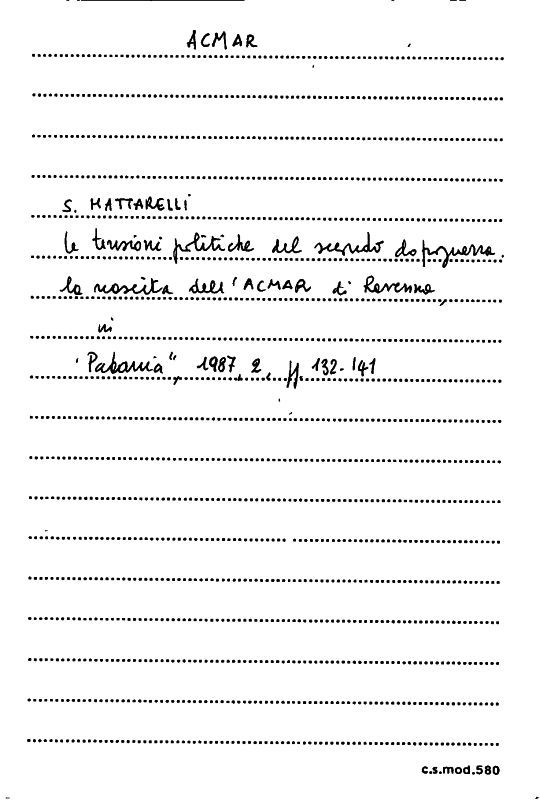 ACMAR
S. MATTARELLI
le tensioni politiche del secondo dopoguerra.
la nascita dell'ACMAR di Ravenna,
in
"Padania", 1987, 2, pp. 132-141
c.s.mod.580